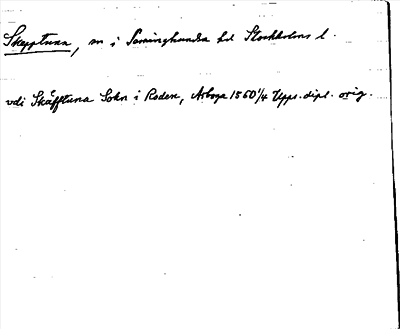 Skepptuna, sn i Seminghundra hd Stockholms l.
udi Skäfftuna Sokn i Roden, Arboga 1560 1/4 Upps. dipl. orig.